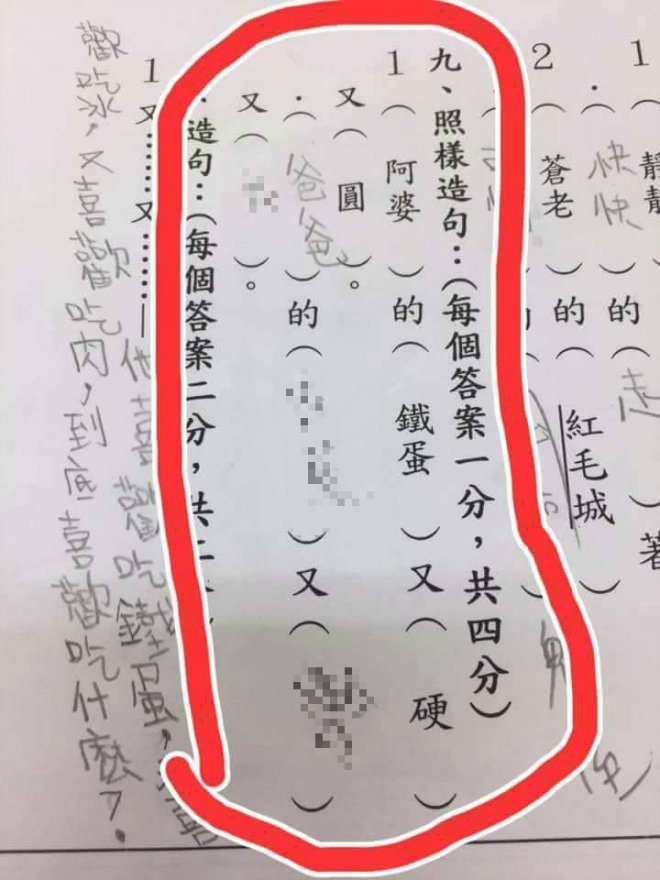 1（靜靜）的
）著
．（快快）的（走
2（蒼老）的（紅毛城）
九、照樣造句：（每個答案一分，共四分）
1（阿婆）的（鐵蛋）又（硬）
又（圓）。
．（爸爸）的（）又（）
又（）。
．造句：（每個答案二分，共二
1又……又……—他喜歡吃鐵蛋，又喜
歡吃冰，又喜歡吃肉，到底喜歡吃什麼？